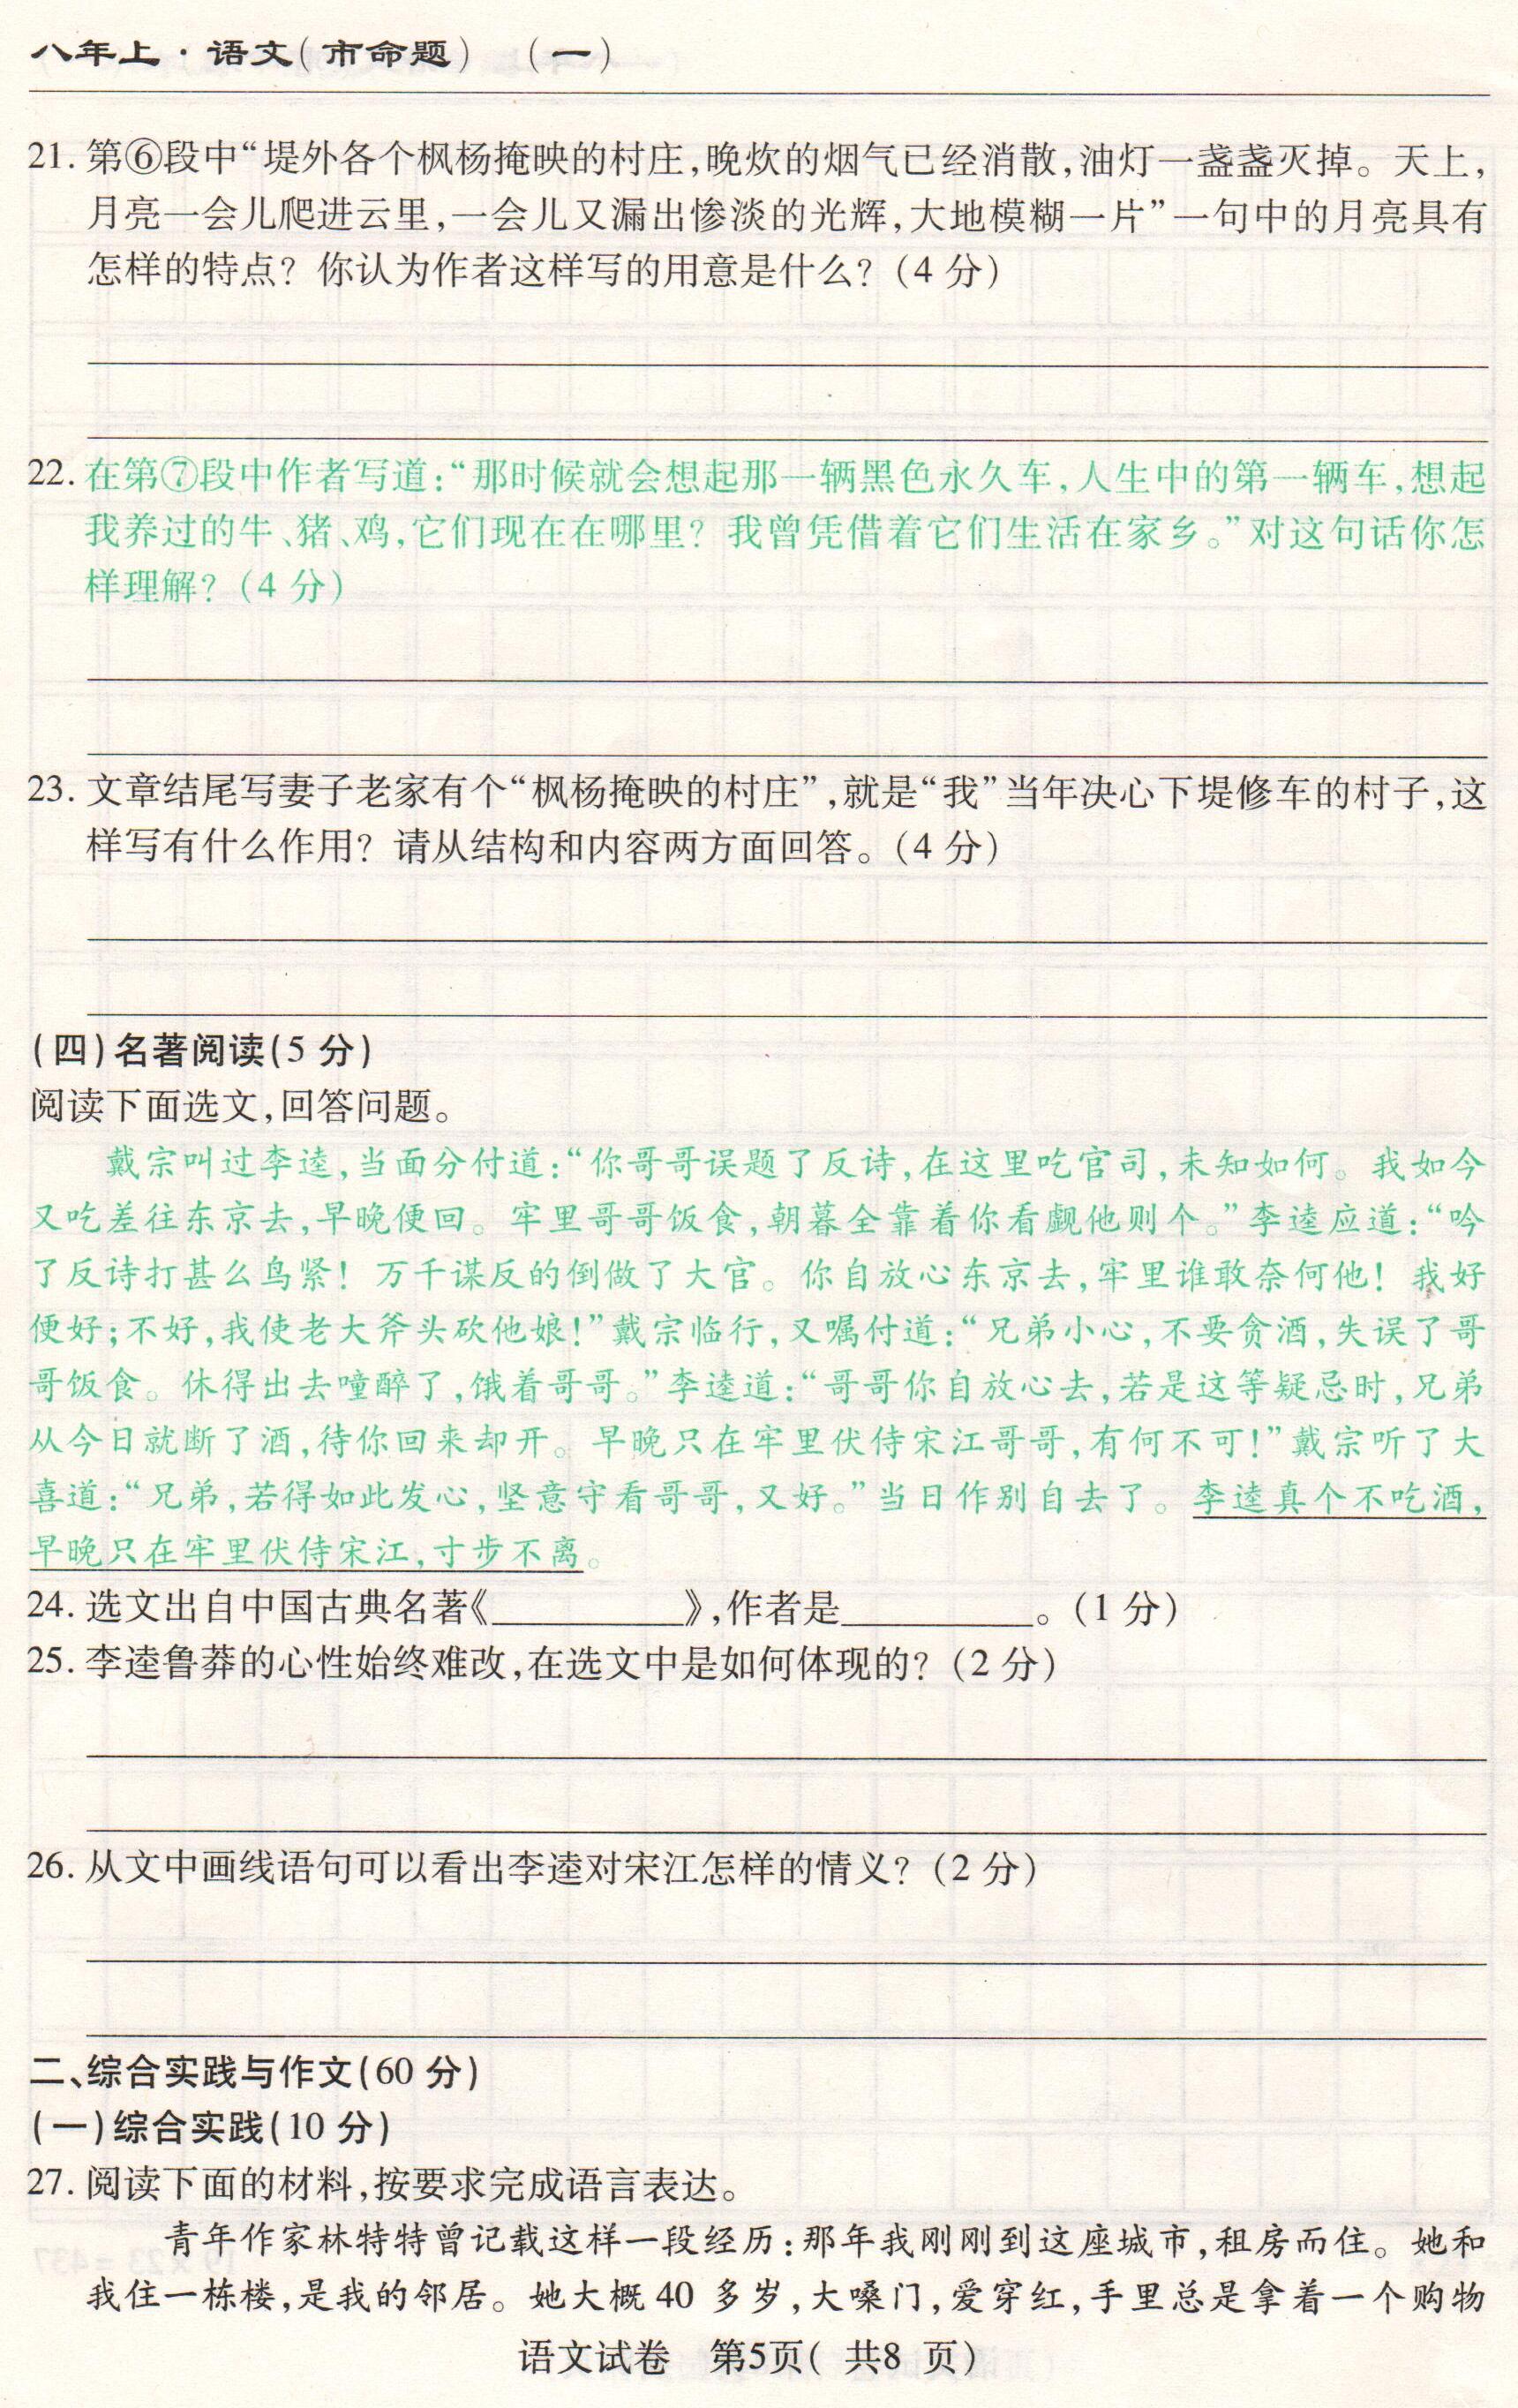 八年上·语文(市命题) (一)
21. 第⑥段中“堤外各个枫杨掩映的村庄,晚炊的烟气已经消散,油灯一盏盏灭掉。天上,
月亮一会儿爬进云里,一会儿又漏出惨淡的光辉,大地模糊一片”一句中的月亮具有
怎样的特点？你认为作者这样写的用意是什么？(4 分)
22. 在第⑦段中作者写道:“那时候就会想起那一辆黑色永久车,人生中的第一辆车,想起
我养过的牛、猪、鸡,它们现在在哪里？我曾凭借着它们生活在家乡。”对这句话你怎
样理解？(4 分)
23. 文章结尾写妻子老家有个“枫杨掩映的村庄”,就是“我”当年决心下堤修车的村子,这
样写有什么作用？请从结构和内容两方面回答。(4 分)
(四)名著阅读(5 分)
阅读下面选文,回答问题。
戴宗叫过李逵,当面分付道:“你哥哥误题了反诗,在这里吃官司,未知如何。我如今
又吃差往东京去,早晚便回。牢里哥哥饭食,朝暮全靠着你看觑他则个。”李逵应道:“吟
了反诗打甚么鸟紧！万千谋反的倒做了大官。你自放心东京去,牢里谁敢奈何他！我好
便好;不好,我使老大斧头砍他娘！”戴宗临行,又嘱付道:“兄弟小心,不要贪酒,失误了哥
哥饭食。休得出去噇醉了,饿着哥哥。”李逵道:“哥哥你自放心去,若是这等疑忌时,兄弟
从今日就断了酒,待你回来却开。早晚只在牢里伏侍宋江哥哥,有何不可！”戴宗听了大
喜道:“兄弟,若得如此发心,坚意守看哥哥,又好。”当日作别自去了。李逵真个不吃酒,
早晚只在牢里伏侍宋江,寸步不离。
24. 选文出自中国古典名著《________》,作者是________。(1 分)
25. 李逵鲁莽的心性始终难改,在选文中是如何体现的？(2 分)
26. 从文中画线语句可以看出李逵对宋江怎样的情义？(2 分)
二、综合实践与作文(60 分)
(一)综合实践(10 分)
27. 阅读下面的材料,按要求完成语言表达。
青年作家林特特曾记载这样一段经历:那年我刚刚到这座城市,租房而住。她和
我住一栋楼,是我的邻居。她大概 40 多岁,大嗓门,爱穿红,手里总是拿着一个购物
语文试卷 第5页( 共8 页)